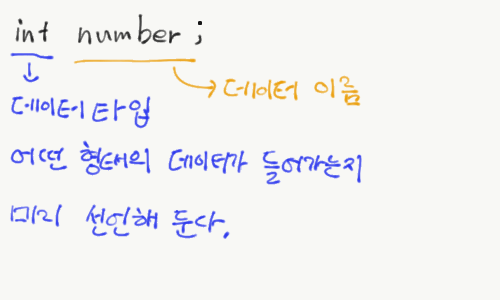 int number;
데이터 이름
데이터 타입
어떤 형태의 데이터가 들어가는지
미리 선언해 둔다.